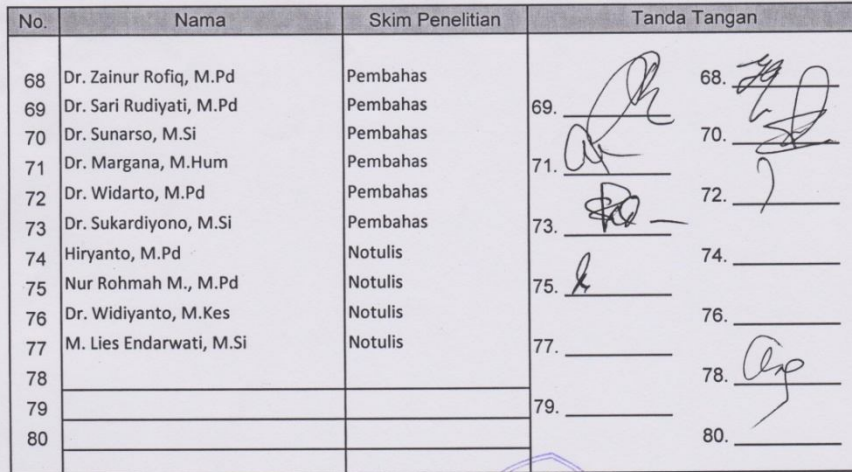 No. Nama Skim Penelitian Tanda Tangan
68 Dr. Zainur Rofiq, M.Pd Pembahas 68.
69 Dr. Sari Rudiyati, M.Pd Pembahas 69.
70 Dr. Sunarso, M.Si Pembahas 70.
71 Dr. Margana, M.Hum Pembahas 71.
72 Dr. Widarto, M.Pd Pembahas 72.
73 Dr. Sukardiyono, M.Si Pembahas 73.
74 Hiryanto, M.Pd Notulis 74.
75 Nur Rohmah M., M.Pd Notulis 75.
76 Dr. Widiyanto, M.Kes Notulis 76.
77 M. Lies Endarwati, M.Si Notulis 77.
78 78.
79 79.
80 80.